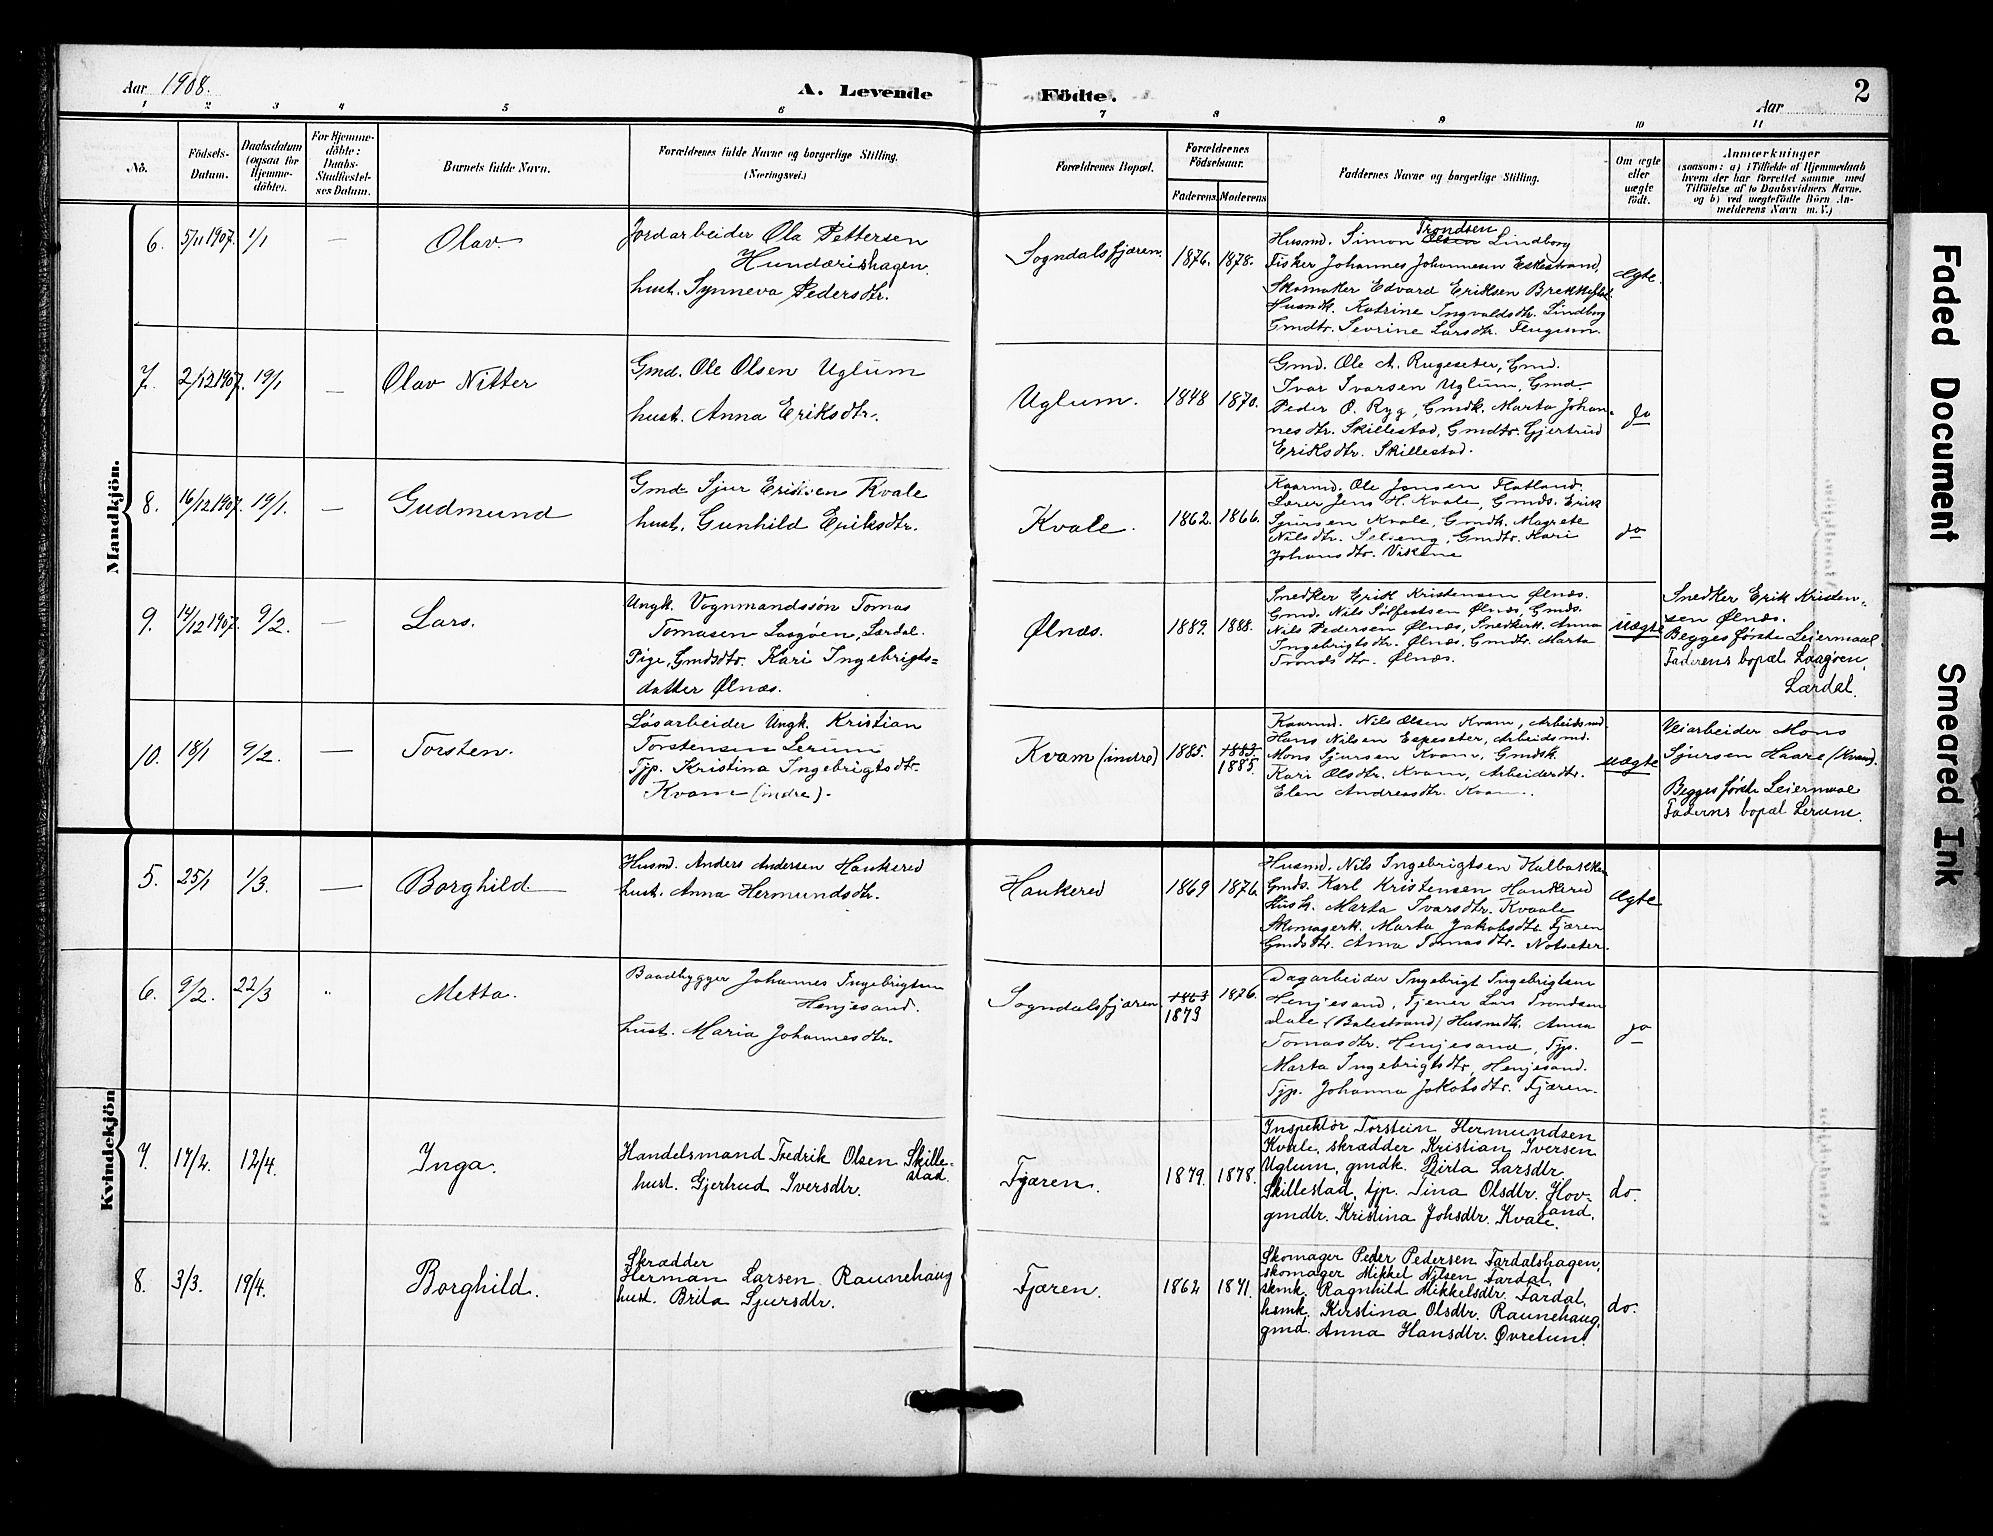 Aar 1908.
A. Levende Födte.
Aar
2
1 2 3 4 5 6 7 8 9 10 11
No. Födsels-Datum. Daabsdatum (ogsaa for Hjemme-döbte). For Hjemme-döbte: Daabs-Stadfæstel-ses Datum. Barnets fulde Navn. Forældrenes fulde Navne og borgerlige Stilling. (Næringsvei.) Forældrenes Bopæl. Forældrenes Födselsaar. Faderens Moderens Faddernes Navne og borgerlige Stilling. Om ægte eller uægte födt. Anmærkninger
(saasom: a) i Tilfælde af Hjemmedaab
hvem der har forrettet samme, med
Tilföielse af to Daabsvidners Navne.
og b) ved uægtefödte Börn, An-
melderens Navn m. V.)
Mandkjön.
6. 5/11 1907. 1/1 — Olav
Jordarbeider Ola Pettersen
Hundærishagen.
hust. Synneva Pedersdtr.
Sogndalsfjæren. 1876. 1878.
Trondsen
Husmd. Simon Olsen Lindborg
Fisker Johannes Johannesen Eskestrand,
Skomaker Edvard Eriksen
Husmdk. Katrine Ingvaldsdtr. Lindborg
Gmdtr. Sevrine Larsdtr.
Ægte.
7. 2/12 1907. 19/1 — Olav Nitter
Gmd. Ole Olsen Uglum
hust. Anna Eriksdtr.
Uglum. 1848 1870.
Gmd. Ole A. Rugeseter, Gmd.
Ivar Ivarsen Uglum, Gmd.
Peder O. Ryg, Gmdk. Marta Johan-
nesdtr. Skillestad, Gmdtr. Gjertrud
Eriksdtr. Skillestad.
do
8. 16/12 1907. 19/1. — Gudmund
Gmd. Sjur Eriksen Kvale
hust. Gunhild Eriksdtr.
Kvale. 1862. 1866.
Kaarmd. Ole Jonsen Flatland.
Lærer Jens H. Kvale, Gmds. Erik
Sjursen Kvale, Gmdk. Magrete
Nilsdtr. Seleng, Gmdtr. Kari
Johansdtr. Vikene
do
9. 14/12 1907. 9/2. — Lars.
Ungk. Vognmandssøn Tomas
Tomasen Laagøen, Lærdal.
Pige, Gmdsdtr. Kari Ingebrigts=
datter Ølnæs.
Ølnæs. 1889. 1888.
Snedker Erik Kristensen Ølnæs.
Gmd. Nils Sølfestsen Ølnæs, Gmds.
Nils Pedersen Ølnæs, Snedkerk. Anna
Ingebrigtsdtr. Ølnæs, Gmdtr. Marta
Trondsdtr. Ølnæs.
uægte
Snedker Erik Kristen-
sen Ølnæs.
Begges første Leiermaal
Faderens bopæl Laagøen,
Lærdal.
10. 18/1 9/2. — Torsten.
Løsarbeider Ungk. Kristian
Torstensen Lerum
Tjp. Kristina Ingebrigtsdtr.
Kvam (indre).
Kvam (indre) 1885. 1883. 1885.
Kaarmd. Nils Olsen Kvam, Arbeidsmd.
Hans Nilsen Espeseter, Arbeidsmd.
Mons Sjursen Kvam, Gmdsk.
Kari Olsdtr. Kvam, Arbeiderdtr.
Elen Andreasdtr. Kvam.
uægte
Veiarbeider Mons
Sjursen Haare (Kvam).
Begges første Leiermaal
Faderns bopæl Lerum.
Kvindekjön
5. 25/1 1/3. — Borghild
Husmd. Anders Andersen Haukered
hust. Anna Hermundsdtr.
Haukered 1869 1876.
Husmd. Nils Ingebrigtsen Kalbakken
Gmds. Karl Kristensen Haukered
Husk. Marta Ivarsdtr. Kvaale
Skomagerk. Marta Jakobsdtr. Fjæren
Gmdsdtr. Anna Tomasdtr. Notseter.
Ægte
6. 9/2. 22/3 " Metta.
Baadbygger Johannes Ingebrigtsen
Henjesand.
hust. Maria Johannesdtr.
Sogndalsfjæren. 1863 1879 1876.
Dagarbeider Ingebrigt Ingebrigtsen
Henjesand, Tjener Lars Trondsen
Dale (Balestrand) Husmdk. Anna
Tomasdtr. Henjesand, Tjp.
Marta Ingebrigtsdtr, Henjesand.
Tjp. Johanna Jakobsdtr. Fjæren.
do
7. 17/2. 12/4. Inga.
Handelsmand Fredrik Olsen Skille-
stad.
hust. Gjertrud Iversdtr.
Fjæren. 1879. 1878.
Inspektör Torstein Hermundsen
Kvale, skrædder Kristian Iversen
Uglum, gmdk. Birta Larsdtr.
Skillestad, tjp. Tina Olsdtr. Hov-
land.
gmdtr. Kristina Johsdtr. Kvale.
do.
8. 3/3. 19/4. Borghild.
Skrædder
Herman Larsen Raunehaug
hust. Brita Sjursdtr.
Fjæren. 1862 1871.
Skomager Peder Pedersen Fardalshagen,
skomager Mikkel Nilsen Fardal,
skmk. Ragnhild Mikkelsdtr. Fardal,
hsmk. Kirstina Olsdtr. Raunehaug,
gmd. Anna Hansdtr. Øvretun.
do.
Faded Document
Smeared Ink